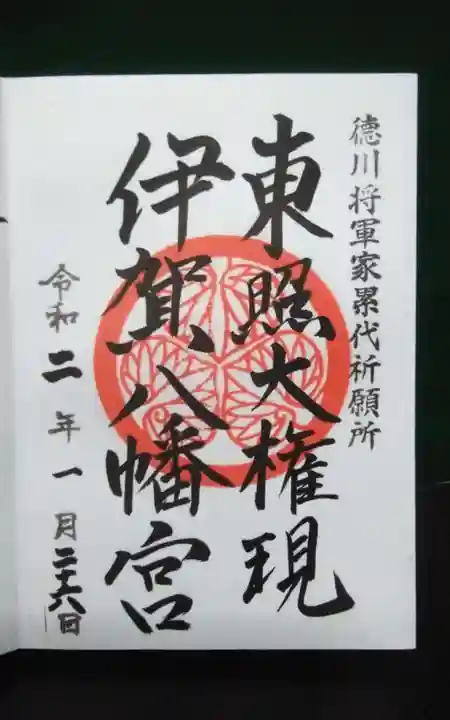 徳川将軍家累代祈願所
東照大権現
伊賀八幡宮
令和二年一月二十六日